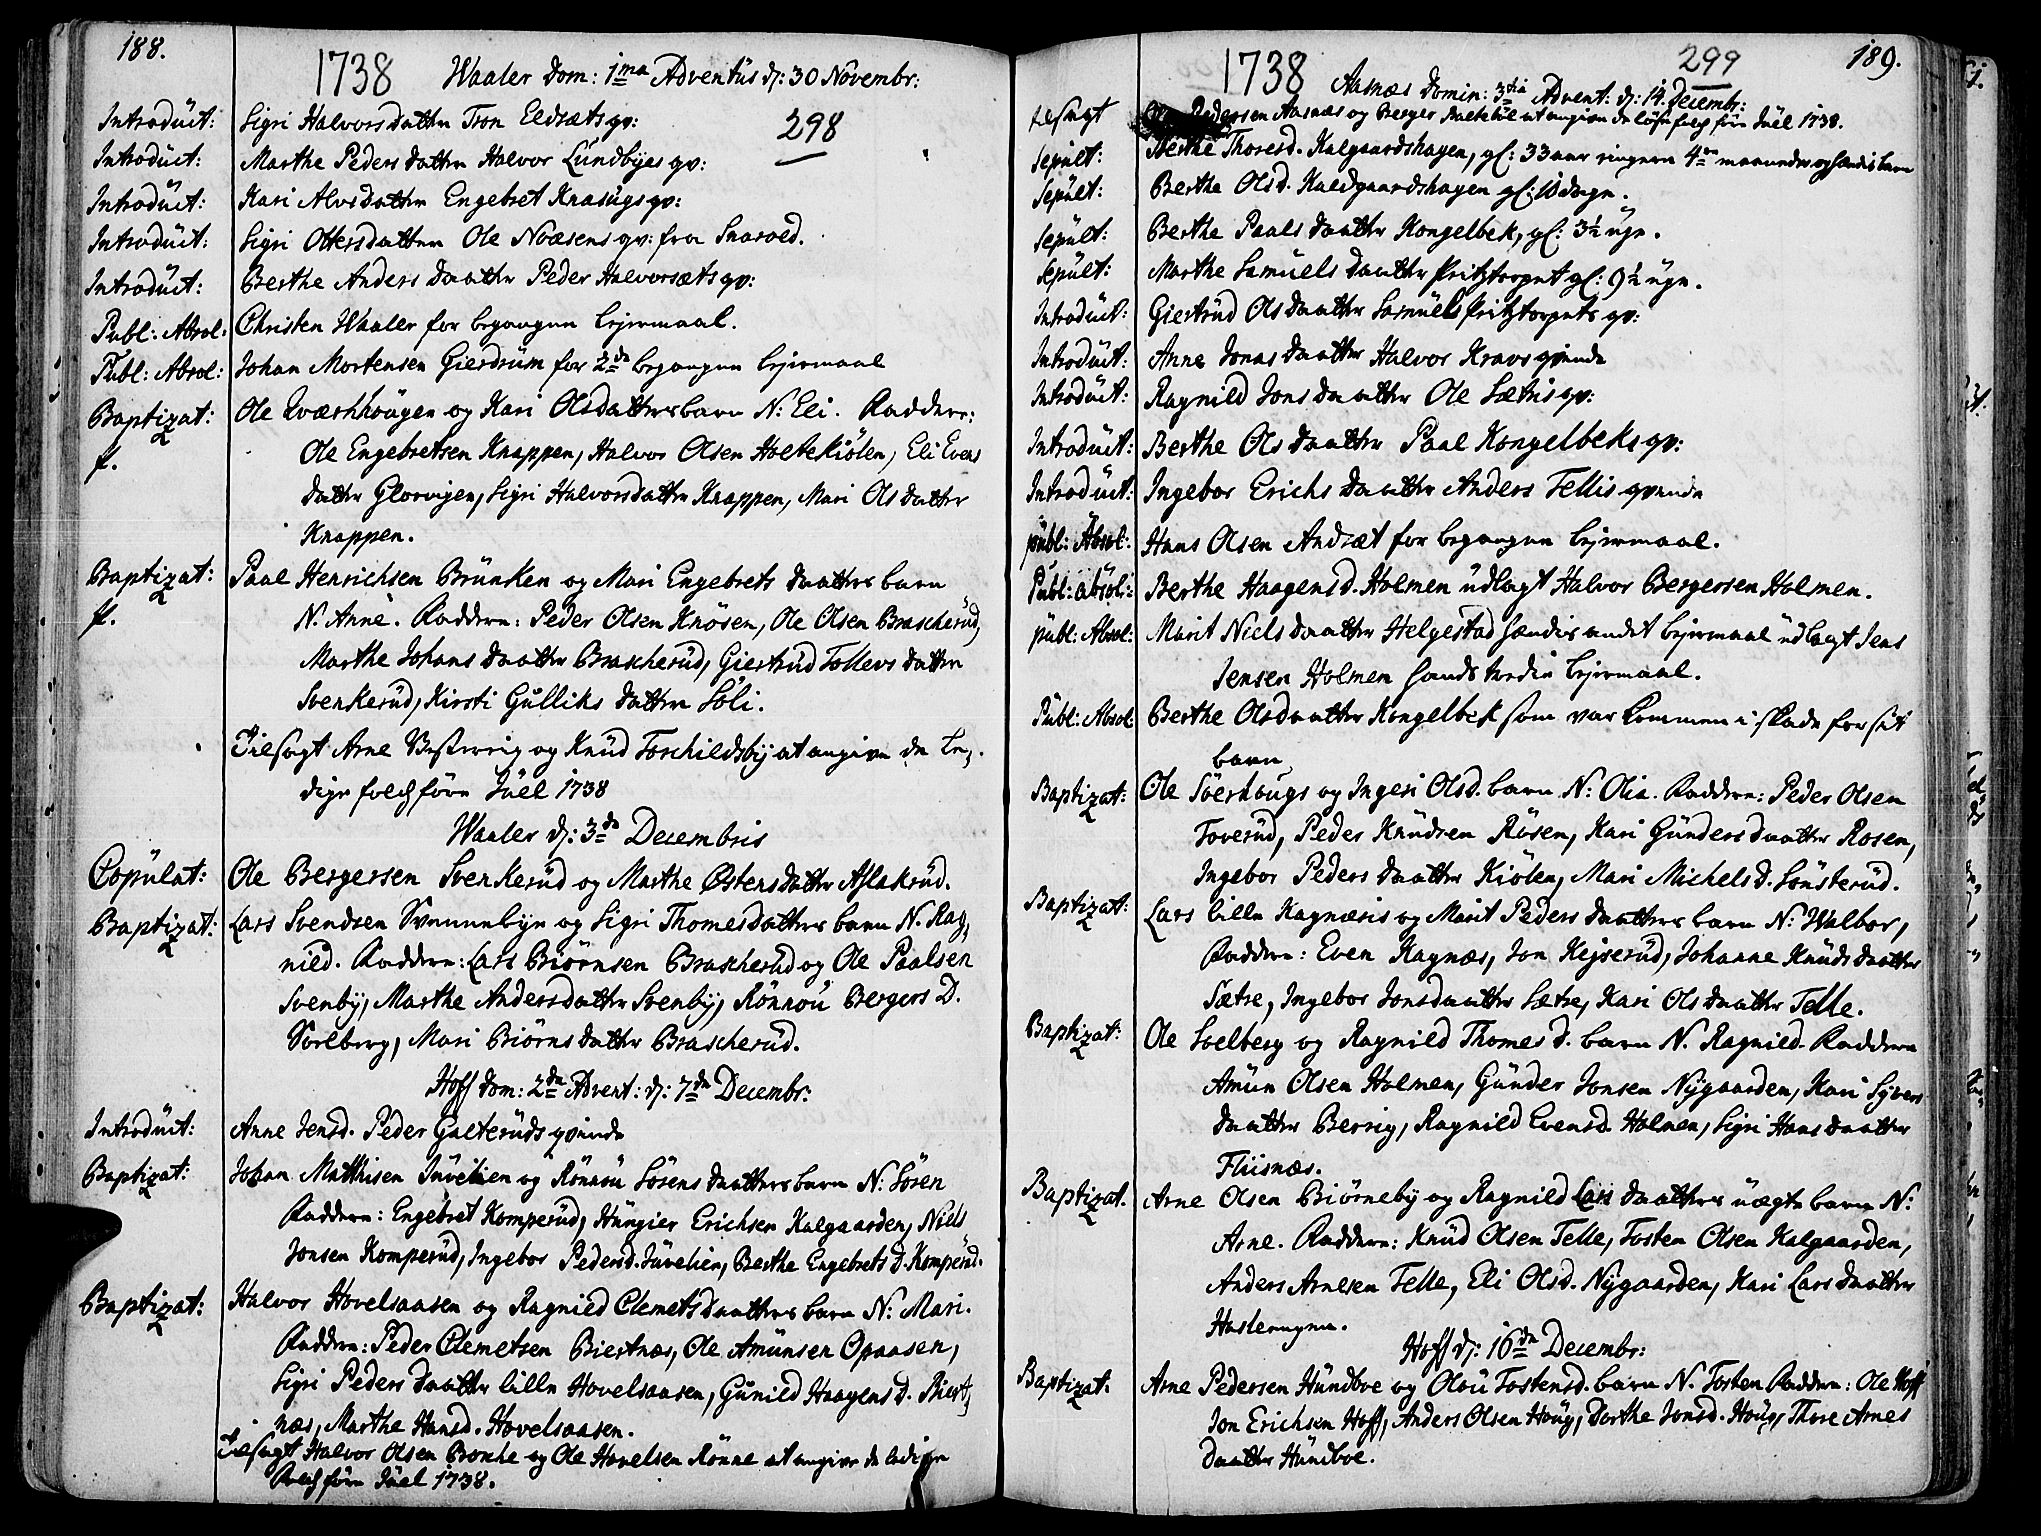 188.
1738 Waaler Dom: 1ma Adventûs d: 30 Novembr:
298
Introdûct: Sigri Halvorsdatter Tron Eldsæts qv:
Introdûct: Marthe Pedersdatter Halvor Lûndbyes qv:
Introdûct: Kari Alvsdatter Engebret Krasûgs qv:
Introdûct: Sigri Ottersdatter Ole Noæsens qv: fra Snaroed.
Introdûct: Berthe Anders daatter Peder Halvorsæts qv:
Publ: Absol: Christen Waaler for begangen lejermaal.
Publ: Absol: Johan Mortensen Gierdrûm for 2de begangen lejermaal
Baptizat: Ole Qværhhoûgen og Kari Olsdatters barn N: Eli. Faddere:
f. Ole Engebretsen Knappen, Halvor Olsen Holtekiölen, Eli Evens
datter Glorvigen, Sigri Halvorsdatter Knappen, Mari Olsdatter
Knappen.
Baptizat: Paal Henrichsen Brûnken og Mari Engebrets daatters barn
f. N. Anne. Faddere: Peder Olsen Knösen, Ole Olsen Brascherûd,
Marthe Johans daatter Brascherûd, Giertrûd Tollevs datter
Svenkerûd, Kirsti Gûlliks datter Söli.
Tilsagt Arne Vesterrig og Knûd Torschildsbÿ at angive de le-
dige folch före Jûel 1738
Waaler d: 3de Decembris
Copûlat: Ole Bergersen Svenkerûd og Marthe Østensdatter Aslakrûd.
Baptizat: Lars Svendsen Svennebye og Sigri Thomesdatters barn N. Rag-
nild. Faddere: Lars Biörnsen Brascherûd og Ole Paalsen
Svenbÿ, Marthe Andersdatter Svenbÿ, Rönnoû Bergers D.
Sorlberg, Mari Biörns datter Brascherûd.
Hoff Dom: 2de Advent: d: 7de Decembr:
Introdûct: Anne Jensd. Peder Galterûds qvinde
Baptizat: Johan Matthisen Jûvelien og Rönnou Sörens daatters barn N: Sören
Faddere: Engebret Komperûd, Hûngier Erichsen Kalgaarden, Niels
Jonsen Komperûd, Ingebor Pedersd. Jûvelien, Berthe Engebrets D. Komperûd.
Baptizat: Halvor Hovelsaasen og Ragnild Clemets daatters barn N: Mari.
Faddere: Peder Clemetsen Biertnæs, Ole Amûnsen Opaasen,
Sigri Peders daatter lille Hovelsaasen, Gûnild Haagensd. Biert-
næs, Marthe Hansd. Hovelsaasen.
Tilsagt Halvor Olsen Bronke og Ole Hovelsen Rönne at angive de ledige
Folch före Jûel 1738.
1738 299 189.
Aasnæs Domin: 3tia Advent: d: 14. Decembr:
tilsagt Pedersen Aasnæs og Berger at angive de löse folch före Jûel 1738.
Sepûlt: Berthe Thoresd. Kalgaardshagen, gl: 33 aar ringere 4re maaneder og hendis barn
Sepûlt: Berthe Olsd. Kaldgaardshagen gl: 10 dage.
Sepûlt: Berthe Paals daatter Kongelbek, gl: 3½ ûge.
Sepûlt: Marthe Samûels daatter Pritztorpet gl: 9½ ûge.
Introdûct: Giertrûd Ols daatter Samûels Pritztorpets qv:
Introdûct: Anne Jonas daatter Halvor Kravs qvinde
Introdûct: Ragnild Jons daatter Ole Sætris qv:
Introdûct: Berthe Ols daatter Paal Kongelbeks qv:
Introdûct: Ingebor Erichs daatter Anders Tellis qvinde
pûbl: Absol: Hans Olsen Andsæt for begangen lejermaal.
Pûbl: absol: Berthe Haagensd. Holmen ûdlagt Halvor Bergersen Holmen.
pûbl: Absol: Marit Niels daatter Helgestad hendis andet lejermaal ûdlagt Jens
Jensen Holmen hands tredie lejermaal.
Pûbl: Absol Berthe Olsdaatter Kongelbek som var kommen i skade for sit
barn
Baptizat: Ole Söerhougs og Ingeri Olsd. barn N: Olia. Faddere: Peder Olsen
Toverûd, Peder Knûdsen Rösen, Kari Gûnders daatter Rosen,
Ingebor Peders daatter Kiölen, Mari Michelsd. Sönsterûd.
Baptizat: Lars lille Kagnæsis og Marit Peders daatters barn N: Walbor,
Faddere: Even Kagnæs, Jon Kejserûd, Johanne Knûds daatter
Sætre, Ingebor Jonsdaatter Sætre, Kari Ols daatter Telle.
Baptizat: Ole Soelberg og Ragnild Thomes d. barn N. Ragnild. Faddere
Amûn Olsen Holmen, Gûnder Jonsen Nÿgaarden, Kari Syvers
daatter Berrig, Ragnild Evensd. Holmen, Sigri Hans daatter
Fliisnæs.
Baptizat. Arne Olsen Biörnebÿ og Ragnild Lars daatters ûægte barn N:
Arne. Faddere: Knûd Olsen Telle, Tosten Olsen Kalgaarden,
Anders Arnesen Telle, Eli Olsd. Nÿgaarden, Kari Lars daatter
Haslerugen.
Hoff d: 16de Decembr:
Baptizat. Arne Pedersen Hûndboe og Oloû Tostensd. barn N. Tosten Faddere: Ole Hoff
Jon Erichsen Hoff, Anders Olsen Hoûg, Dorthe Jonsd. Hoûg, Thore Arnes
daatter Hûndboe.